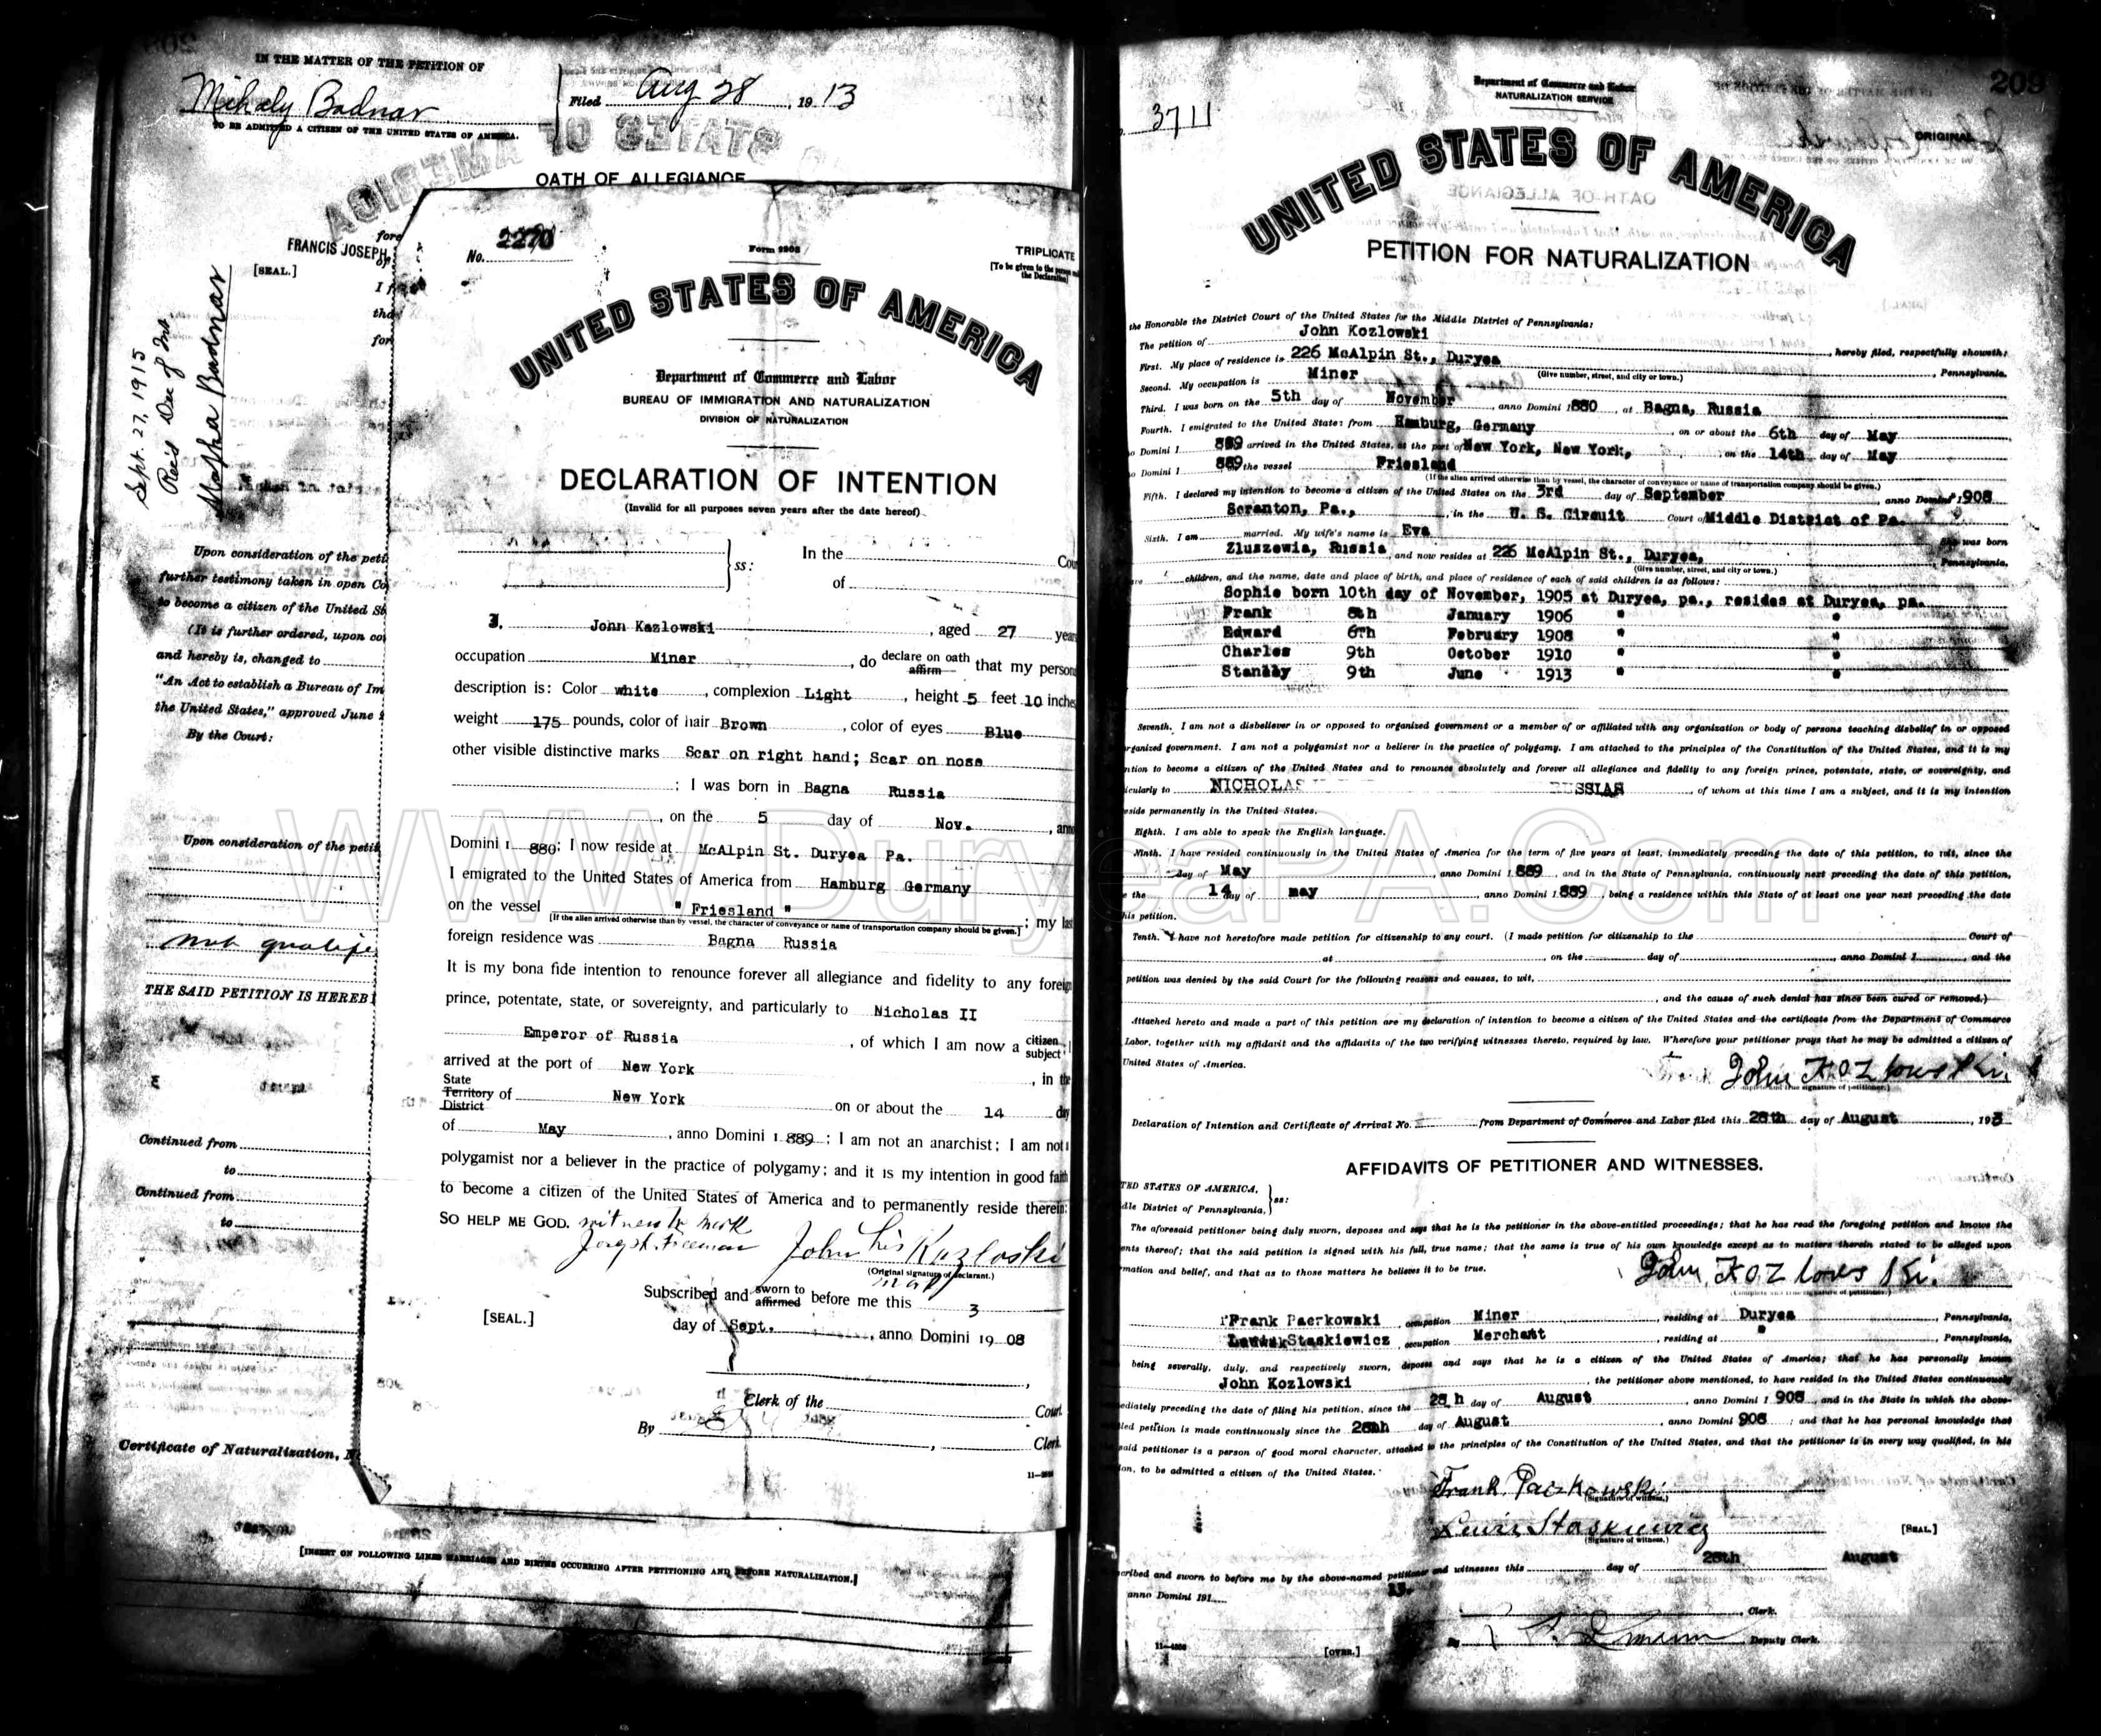 IN THE MATTER OF THE PETITION OF
Mihaly Badnar
TO BE ADMITTED A CITIZEN OF THE UNITED STATES OF AMERICA.
Filed Aug 28, 1913
OATH OF ALLEGIANCE
fore
FRANCIS JOSEPH,
of
[SEAL.]
I
tha
for
Sept. 27, 1915
Rec'd Dec of Int.
Badnar
Upon consideration of the peti
further testimony taken in open Co
to become a citizen of the United St
(It is further ordered, upon co
and hereby is, changed to
"An Act to establish a Bureau of Im
the United States," approved June
By the Court:
Upon consideration of the petit
not qualifie
THE SAID PETITION IS HEREB
Continued from
to
Continued from
to
Certificate of Naturalization, N
[INSERT ON FOLLOWING LINES MARRIAGES AND BIRTHS OCCURRING AFTER PETITIONING AND BEFORE NATURALIZATION.]
No. 2270
Form 2203
TRIPLICATE
[To be given to the person
the Declaration]
UNITED STATES OF AMERICA
Department of Commerce and Labor
BUREAU OF IMMIGRATION AND NATURALIZATION
DIVISION OF NATURALIZATION
DECLARATION OF INTENTION
(Invalid for all purposes seven years after the date hereof)
ss:
In the Cou
of
I, John Kazlowski, aged 27 years
occupation Miner, do declare on oath affirm that my person
description is: Color white, complexion Light, height 5 feet 10 inches
weight 175 pounds, color of hair Brown, color of eyes Blue
other visible distinctive marks Scar on right hand; Scar on nose
; I was born in Bagna Russia
, on the 5 day of Nov., ann
Domini 1 880; I now reside at McAlpin St. Duryea Pa.
I emigrated to the United States of America from Hamburg Germany
on the vessel " Friesland "; my last
[If the alien arrived otherwise than by vessel, the character of conveyance or name of transportation company should be given.]
foreign residence was Bagna Russia
It is my bona fide intention to renounce forever all allegiance and fidelity to any foreign
prince, potentate, state, or sovereignty, and particularly to Nicholas II
Emperor of Russia, of which I am now a citizen subject; I
arrived at the port of New York, in the
State Territory District of New York on or about the 14 day
of May, anno Domini 1 889; I am not an anarchist; I am not
polygamist nor a believer in the practice of polygamy; and it is my intention in good faith
to become a citizen of the United States of America and to permanently reside therein:
SO HELP ME GOD. witness to mark
Joseph Freeman
John his Kozloski
mark
(Original signature of declarant.)
Subscribed and sworn to affirmed before me this 3
[SEAL.]
day of Sept., anno Domini 19 08
Clerk of the Court.
By , Clerk
209
3711
Department of Commerce and Labor
NATURALIZATION SERVICE
ORIGINAL
UNITED STATES OF AMERICA
PETITION FOR NATURALIZATION
the Honorable the District Court of the United States for the Middle District of Pennsylvania:
The petition of John Kozlowski, hereby filed, respectfully showeth:
First. My place of residence is 226 McAlpin St., Duryea, Pennsylvania.
(Give number, street, and city or town.)
Second. My occupation is Miner
Third. I was born on the 5th day of November, anno Domini 1 880, at Bagna, Russia
Fourth. I emigrated to the United States from Hamburg, Germany, on or about the 6th day of May
o Domini 1 889 arrived in the United States, at the port of New York, New York, on the 14th day of May
o Domini 1 889 the vessel Friesland
(If the alien arrived otherwise than by vessel, the character of conveyance or name of transportation company should be given.)
Fifth. I declared my intention to become a citizen of the United States on the 3rd day of September anno Domini 1 908
Scranton, Pa., , in the U. S. Circuit Court of Middle District of Pa.
Sixth. I am married. My wife's name is Eva She was born
Zluszewia, Russia, and now resides at 226 McAlpin St., Duryea, , Pennsylvania.
(Give number, street, and city or town.)
children, and the name, date and place of birth, and place of residence of each of said children is as follows:
Sophie born 10th day of November, 1905 at Duryea, pa., resides at Duryea, pa.
Frank 8th January 1906 " "
Edward 6Th February 1908 " "
Charles 9th October 1910 " "
Stanley 9th June 1913 " "
Seventh. I am not a disbeliever in or opposed to organized government or a member of or affiliated with any organization or body of persons teaching disbelief in or opposed
rganized government. I am not a polygamist nor a believer in the practice of polygamy. I am attached to the principles of the Constitution of the United States, and it is my
ntion to become a citizen of the United States and to renounce absolutely and forever all allegiance and fidelity to any foreign prince, potentate, state, or sovereignty, and
icularly to NICHOLAS USSIAS, of whom at this time I am a subject, and it is my intention
eside permanently in the United States.
Eighth. I am able to speak the English language.
Ninth. I have resided continuously in the United States of America for the term of five years at least, immediately preceding the date of this petition, to wit, since the
day of May, anno Domini 1 889, and in the State of Pennsylvania, continuously next preceding the date of this petition,
e the 14 day of may, anno Domini 1 889, being a residence within this State of at least one year next preceding the date
his petition.
Tenth. I have not heretofore made petition for citizenship to any court. (I made petition for citizenship to the Court of
at on the day of , anno Domini 1 , and the
petition was denied by the said Court for the following reasons and causes, to wit,
, and the cause of such denial has since been cured or removed.)
Attached hereto and made a part of this petition are my declaration of intention to become a citizen of the United States and the certificate from the Department of Commerce
Labor, together with my affidavit and the affidavits of the two verifying witnesses thereto, required by law. Wherefore your petitioner prays that he may be admitted a citizen of
United States of America.
John Kozlowski
(Complete and true signature of petitioner.)
Declaration of Intention and Certificate of Arrival No. from Department of Commerce and Labor filed this 28th day of August, 1913
AFFIDAVITS OF PETITIONER AND WITNESSES.
TED STATES OF AMERICA,
dle District of Pennsylvania, ss:
The aforesaid petitioner being duly sworn, deposes and says that he is the petitioner in the above-entitled proceedings; that he has read the foregoing petition and knows the
ents thereof; that the said petition is signed with his full, true name; that the same is true of his own knowledge except as to matters therein stated to be alleged upon
rmation and belief, and that as to those matters he believes it to be true.
John Kozlowski.
(Complete and true signature of petitioner.)
Frank Paczkowski, occupation Miner, residing at Duryea, Pennsylvania,
Staskiewicz, occupation Merchant, residing at ", Pennsylvania,
being severally, duly, and respectively sworn, deposes and says that he is a citizen of the United States of America; that he has personally known
John Kozlowski, the petitioner above mentioned, to have resided in the United States continuously
ediately preceding the date of filing his petition, since the 28 h day of August anno Domini 1 908, and in the State in which the above-
led petition is made continuously since the 28th day of August, anno Domini 908; and that he has personal knowledge that
said petitioner is a person of good moral character, attached to the principles of the Constitution of the United States, and that the petitioner is in every way qualified, in his
ion, to be admitted a citizen of the United States.
Frank Paczkowski
(Signature of witness.)
Lewis Staskiewicz
(Signature of witness.)
[SEAL.]
cribed and sworn to before me by the above-named petitioner and witnesses this 28th day of August
anno Domini 191 13.
, Clerk.
By , Deputy Clerk.
[OVER.]
WWW.DuryeaPA.Com